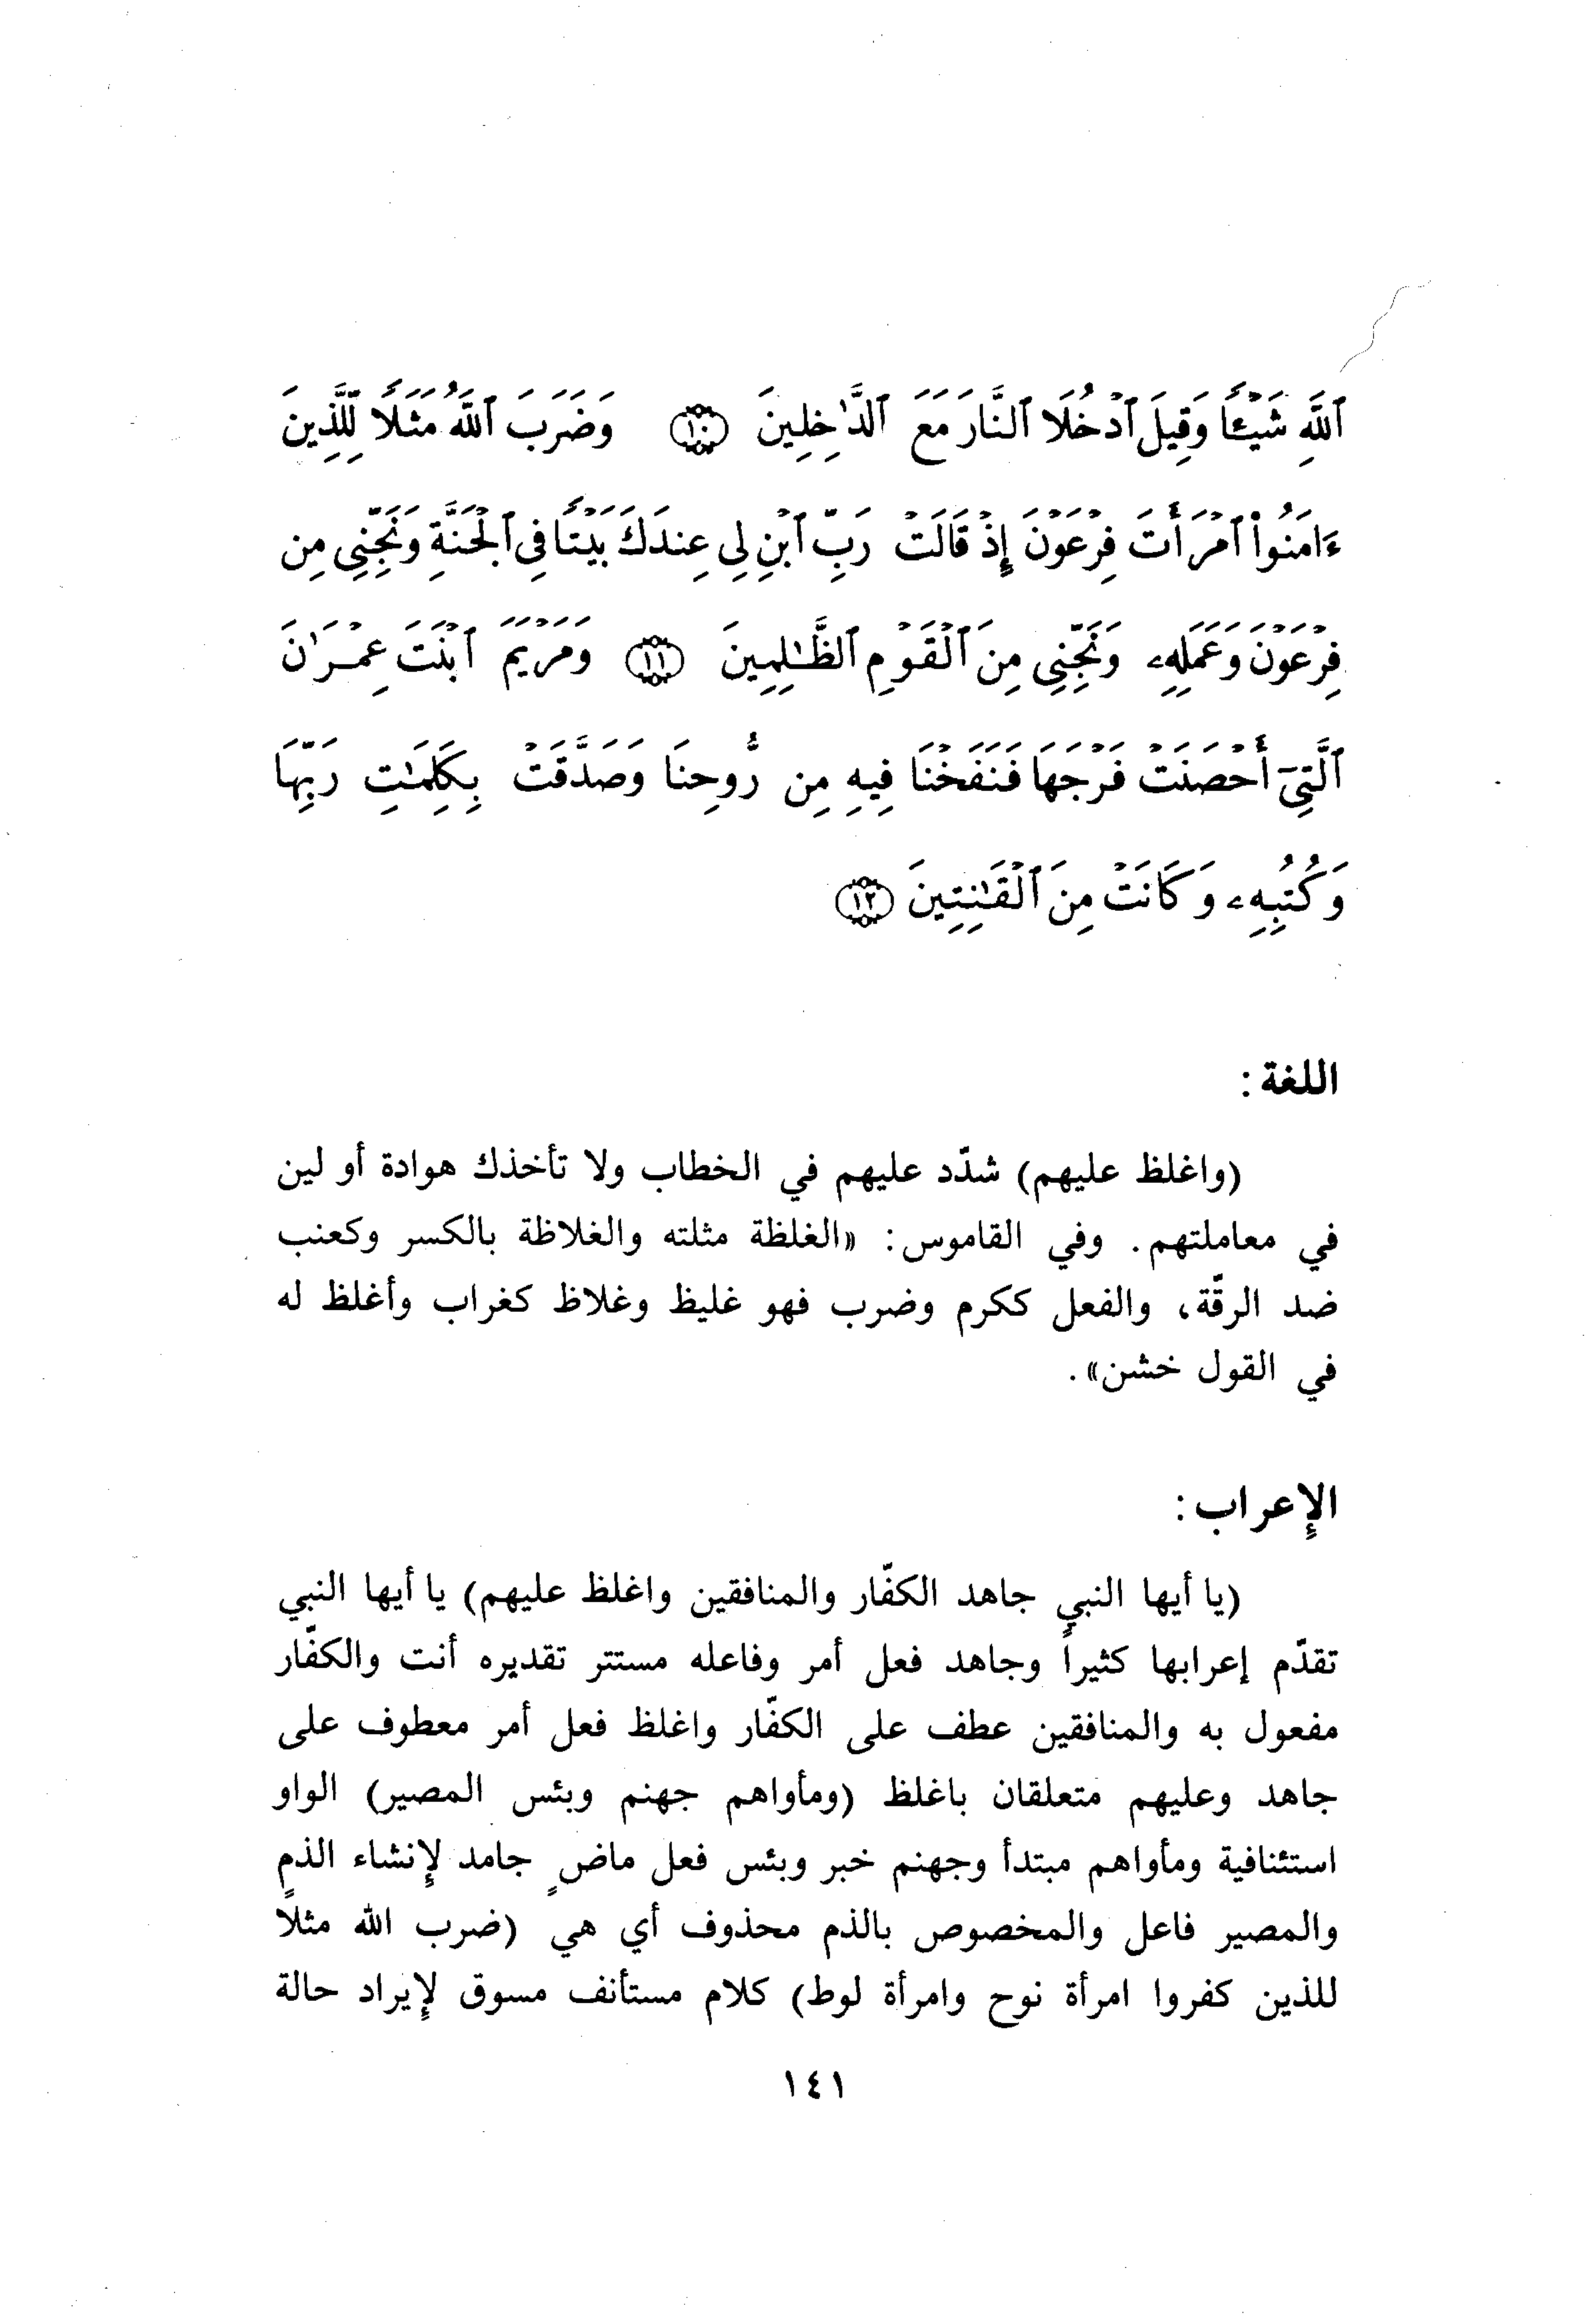 ٱللَّهِ شَيۡـًٔا وَقِيلَ ٱدۡخُلَا ٱلنَّارَ مَعَ ٱلدَّٰخِلِينَ ١٠ وَضَرَبَ ٱللَّهُ مَثَلًا لِّلَّذِينَ
ءَامَنُواْ ٱمۡرَأَتَ فِرۡعَوۡنَ إِذۡ قَالَتۡ رَبِّ ٱبۡنِ لِي عِندَكَ بَيۡتًا فِي ٱلۡجَنَّةِ وَنَجِّنِي مِن
فِرۡعَوۡنَ وَعَمَلِهِۦ وَنَجِّنِي مِنَ ٱلۡقَوۡمِ ٱلظَّـٰلِمِينَ ١١ وَمَرۡيَمَ ٱبۡنَتَ عِمۡرَٰنَ
ٱلَّتِيٓ أَحۡصَنَتۡ فَرۡجَهَا فَنَفَخۡنَا فِيهِ مِن رُّوحِنَا وَصَدَّقَتۡ بِكَلِمَٰتِ رَبِّهَا
وَكُتُبِهِۦ وَكَانَتۡ مِنَ ٱلۡقَٰنِتِينَ ١٢
اللغة :
(واغلظ عليهم) شدّد عليهم في الخطاب ولا تأخذك هوادة أو لين
في معاملتهم. وفي القاموس: «الغلظة مثلته والغلاظة بالكسر وكعنب
ضد الرقّة، والفعل ككرم وضرب فهو غليظ وغلاظ كغراب وأغلظ له
في القول خشن».
الإعراب :
(يا أيها النبي جاهد الكفّار والمنافقين واغلظ عليهم) يا أيها النبي
تقدّم إعرابها كثيراً وجاهد فعل أمر وفاعله مستتر تقديره أنت والكفّار
مفعول به والمنافقين عطف على الكفّار واغلظ فعل أمر معطوف على
جاهد وعليهم متعلقان باغلظ (ومأواهم جهنم وبئس المصير) الواو
استئنافية ومأواهم مبتدأ وجهنم خبر وبئس فعل ماضٍ جامد لإنشاء الذمِ
والمصير فاعل والمخصوص بالذم محذوف أي هي (ضرب الله مثلاً
للذين كفروا امرأة نوح وامرأة لوط) كلام مستأنف مسوق لإيراد حالة
١٤١